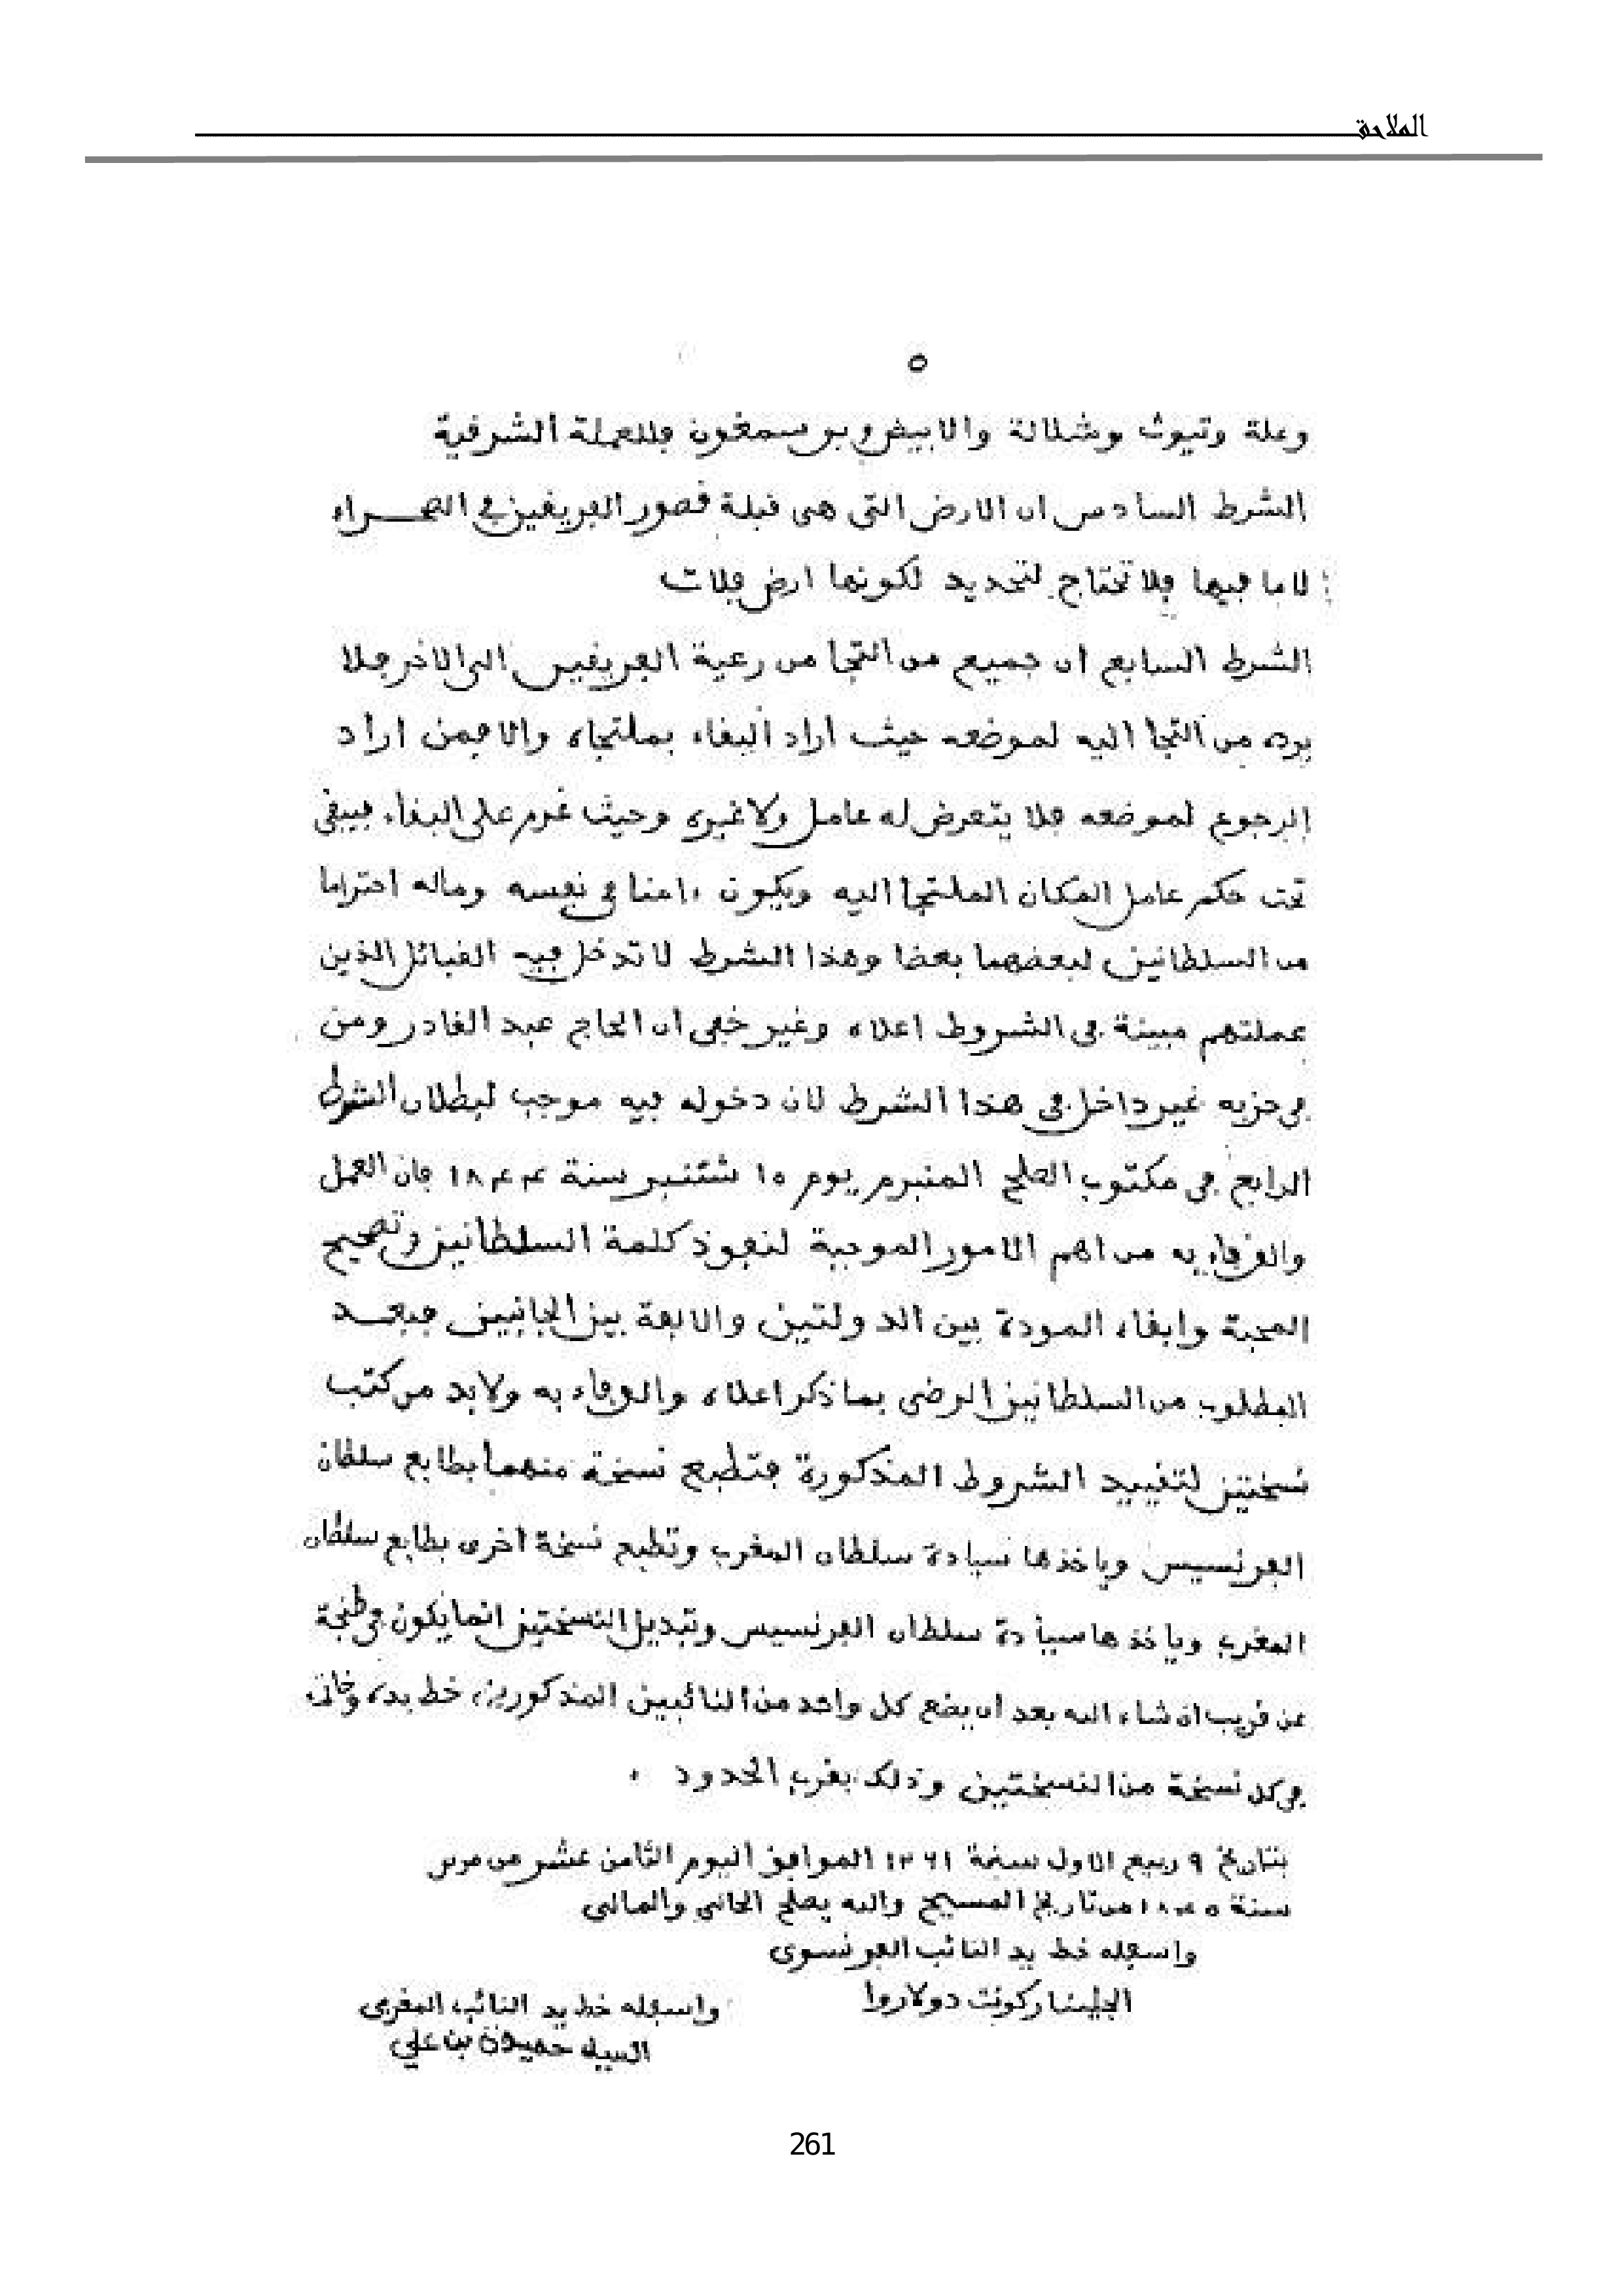 الملاحق
٥
وعلة وتيوت وشلالة والابيض وبوسمغون فللعملة الشرقية
الشرط السادس ان الارض التى هى قبلة قصور الفريقين في الصحراء
لاما فيها فلا تحتاج لتحديد لكونها ارض فلات
الشرط السابع ان جميع من التجا من رعية الفريقين الى الاخر فلا
يرده من التجا اليه لموضعه حيث اراد البقاء بملتجاه والا فمن اراد
الرجوع لموضعه فلا يتعرض له عامل ولا غيره وحيث عزم على البقاء فيبقى
تحت حكم عامل المكان الملتجا اليه ويكون ءامنا في نفسه وماله احتراما
من السلطانين لبعضهما بعضا وهذا الشرط لا تدخل فيه القبائل الذين
عملتهم مبينة فى الشروط اعلاه وغير خفى ان الحاج عبد القادر ومن
فى حزبه غير داخل فى هذا الشرط لان دخوله فيه موجب لبطلان الشرط
الرابع فى مكتوب الصلح المنبرم يوم ١٠ شتنبر سنة ١٨٤٤ فان العمل
والوفاء به من اهم الامور الموجبة لنفوذ كلمة السلطانين وتصحيح
المحبة وابقاء المودة بين الدولتين والالفة بين الجانبين فبعد
المطلوب من السلطانين الرضى بما ذكر اعلاه والوفاء به ولابد من كتب
نسختين لتقييد الشروط المذكورة فتطبع نسخة منهما بطابع سلطان
الفرنسيس وياخذها سيادة سلطان المغرب وتطبع نسخة اخرى بطابع سلطان
المغرب وياخذها سيادة سلطان الفرنسيس وتبديل النسختين انما يكون فى طنجة
عن قريب ان شاء الله بعد ان يضع كل واحد من النائبين المذكورين خط يده وخاتمه
فى كل نسخة من النسختين وذلك بقرب الحدود
بتاريخ ٩ ربيع الاول سنة ١٢٦١ الموافق اليوم الثامن عشر من مرس
سنة ١٨٤٥ من تاريخ المسيح والله يصلح الحال والمال
واسفله خط يد النائب الفرنسوى
الجلينار كونت دولاروا
واسفله خط يد النائب المغربى
السيد حميدة بن علي
261